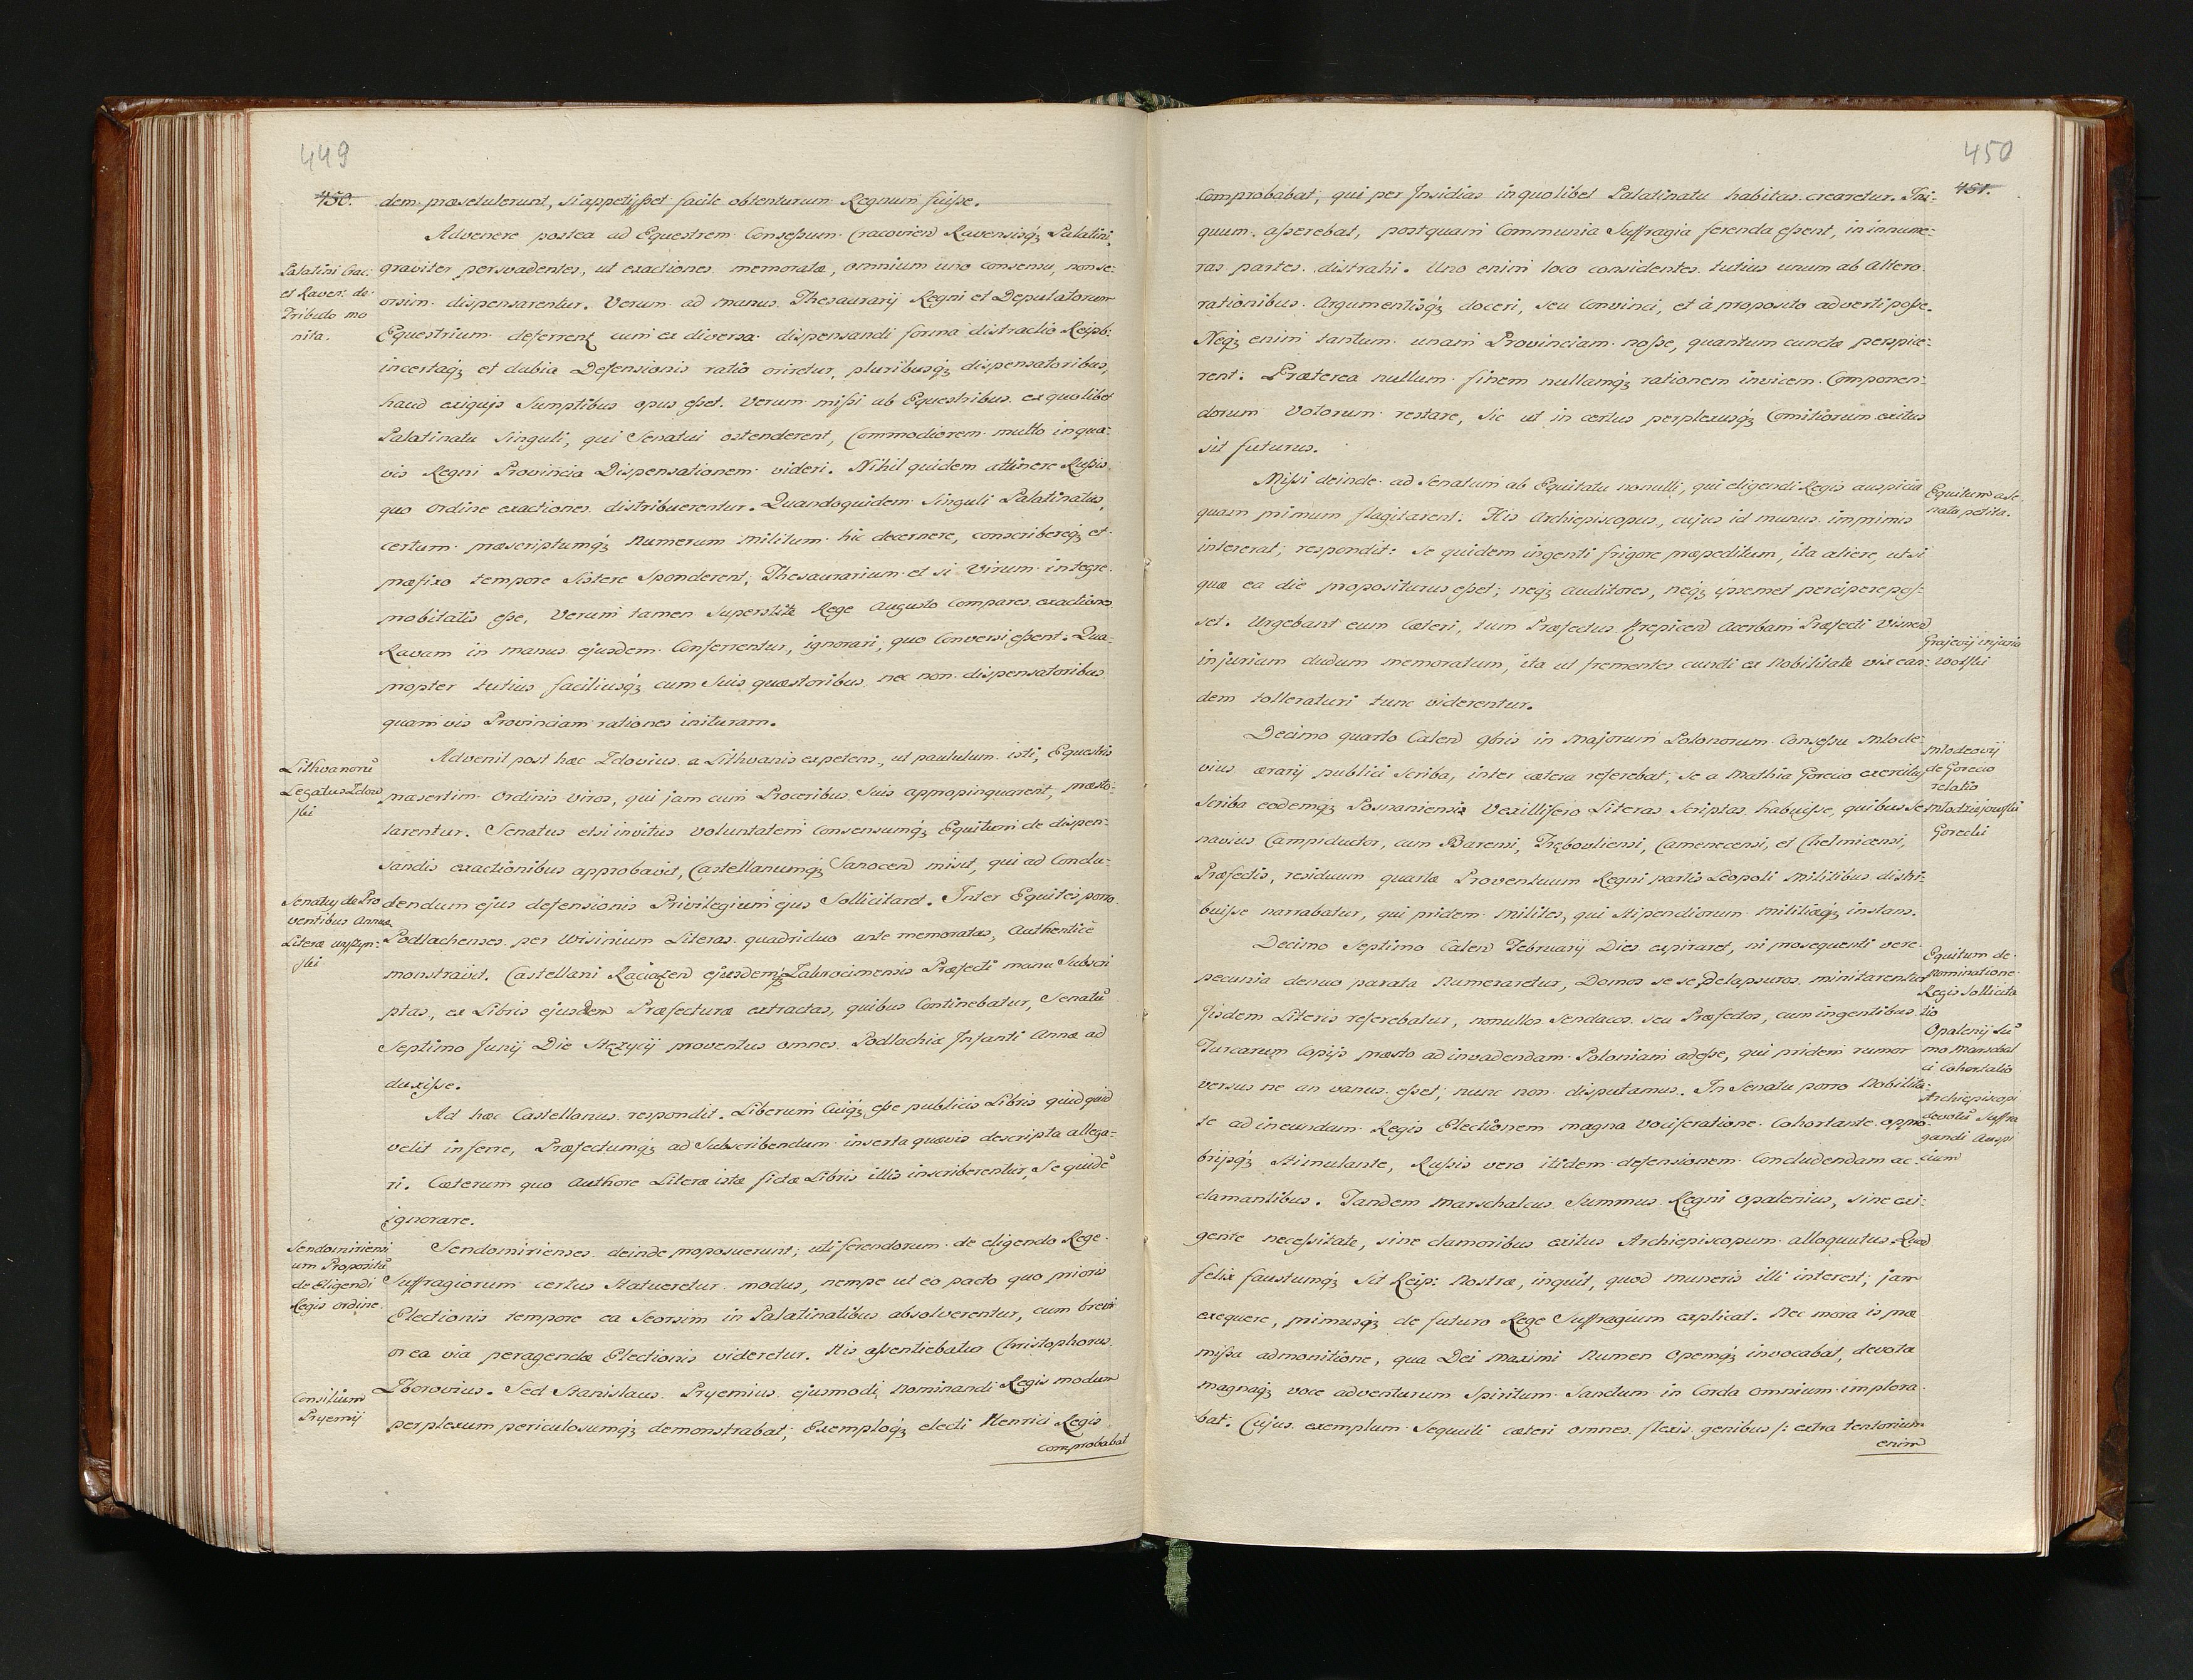 449
450.
dem præsetulerunt, si appetijsset facile obtenturum Regnum fuisse.
Advenere postea ad Equestrem Consessum Cracovien Ravensisq; Palatini,
Palatini Crac:
et Raven: de
Tributo mo
nita.
graviter persvadentes, ut exactiones memoratæ, omnium uno consensu, non se-
orsim dispensarentur. Verum ad manus Thesaurarij Regni et Deputatorum
Equestrium deferrent cum ex diversa dispensandi forma distractio Reipb:
incertaq; et dubia Defensionis ratio oriretur, pluribusq; dispensatoribus,
haud exiguis Sumptibus opus esset. Verum missi ab Equestribus ex quolibet
Palatinatu Singuli, qui Senatui ostenderent, Commodiorem multo in qua-
vis Regni Provincia Dispensationem videri. Nihil quidem attinere Russis
quo ordine exactiones distribuerentur. Quandoquidem Singuli Palatinatus,
certum præscriptumq; Numerum Militum hic decernere, conscribereq; et
præfixo tempore Sistere Sponderent; Thesaurarium et si Virum integre
probitatis esse, Verum tamen Superstite Rege Augusto Compares exactiones
Ravam in manus ejusdem Conferrentur, ignorari, quo Conversi essent. Qua-
propter tutius faciliusq; cum Suis quæstoribus nec non dispensatoribus
quam vis Provinciam rationes inituram.
Lithvanorũ
Legatus Zdow
ski
Advenit post hæc Zdovius a Lithvanis expetens, ut paululum isti, Equestris
præsertim Ordinis Viros, qui jam cum Proceribus Suis appropinquarent, præsto-
larentur. Senatus etsi invitus Voluntatem Consensumq; Equitum de dispen-
sandis exactionibus approbavit, Castellanumq; Sanocen misit, qui ad Conclu-
Senatus de Pro
ventibus Annæ
Literæ wyszyn-
ski
dendum ejus defensionis Privilegium ejus Sollicitaret. Inter Equites porro
Podlachenses per Wisinium Literas quadriduo ante memoratas, Authentice
monstravit. Castellani Raciazen ejusdemq; Zakrocimensis Præfecti manu Subscri
ptas, ex Libris ejusdem Præfecturæ extractas, quibus Continebatur, Senatũ
Septimo Junij Die Stęzycij proventus omnes Podlachiæ Infanti Annæ ad
duxisse.
Ad hæc Castellanus respondit. Liberum Cuiq; esse publicis Libris quidquid
velit inferre, Præfectumq; ad Subscribendum inserta quævis descripta allega-
ri. Cæterum quo Authore Literæ istæ fictæ Libris illis inscriberentur, Se quidẽ
ignorare.
Sendomiriensi
um Propositũ
de Eligendi
Regis ordine.
Sendomirienses deinde proposuerunt, uti ferendorum de eligendo Rege
Suffragiorum certus Statueretur modus, nempe ut eo pacto quo prioris
Electionis tempore ea Seorsim in Palatinatibus absolverentur, cum brevi
or ea via peragendæ Electionis videretur. His assentiebatur Christophorus
Consilium
Pryemij
Zborovius. Sed Stanislaus Pryemius ejusmodi Nominandi Regis modum
perplexum periculosumq; demonstrabat, Exemploq; electi Henrici Regis
comprobabat
450
451.
Comprobabat, qui per Insidias in quolibet Palatinatu habitas crearetur. Ini-
quum asserebat, postquam Communia Suffragia ferenda essent, in innume-
ras partes distrahi. Uno enim loco considentes tutius unum ab Altero
rationibus Argumentisq; doceri, seu Convinci, et à proposito adverti posse.
Neq; enim tantum unam Provinciam nosse, quantum cunctæ perspice-
rent. Præterea nullum finem nullamq; rationem invicem Componen-
dorum Votorum restare, Sic ut in certus perplexusq; Comitiorum exitus
sit futurus.
Missi deinde ad Senatum ab Equitatu nonulli, qui eligendi Regis auspicia
Equitum a Se-
natu petita.
quam primum flagitarent. His Archiepiscopus, cujus id munus imprimis
intererat, respondit: Se quidem ingenti frigore præpeditum, ita aliere, ut si
quæ ea die propositurus esset; neq; Auditores, neq; ipsemet percipere pos-
set. Urgebant eum Cæteri, tum Præfectus Krepicen Acerbam Præfecti Visnen
Grajevij injuria
wolski
injuriam dudum memoratam, ita ut frementes cuncti ex Nobilitate vix ean-
dem tolleraturi tunc viderentur.
Decimo quarto Calend 9bris in Majorum Polonorum Consessu Mlode-
Mlodeovij
de Gorecio
relatio
Mlodziejowski
Gorecki
vius ærarij publici Scriba, inter cætera referebat, se a Mathia Gorecio exercitus
Scriba eodemq; Posnaniensis Vexillifero Literas Scriptas habuisse, quibus Se
navius Campiductor, cum Barensi, Trębovliensi, Camenecensi, et Chelmicensi,
Præfectis, residuum quartæ Proventuum Regni partis Leopoli Militibus distri-
buisse narrabatur, qui pridem Milites, qui Stipendiorum Militiæq; instans.
Decimo Septimo Calend Februarij Dies expiraret, ni prosequenti vere
Equitum de
Nominatione
Regis Sollicita
tio
pecunia denuo parata Numeraretur, Domos se se Delapsuros minitarentur
Iisdem Literis referebatur, nonullos Sendacos seu Præfectos, cum ingentibus
Opalenij Su
mo Marschal
ci Cohortatio
Turcarum Copijs præsto ad invadendam Poloniam adesse, qui pridem rumor
versus ne an vanus esset, nunc non disputamus. In Senatu porro Nobilita-
Archiepiscopi
devotũ Suffra
gandi Auspi
cium
te ad ineundam Regis Electionem magna Vociferatione Cohortante oppro-
brijsq; Stimulante, Russis vero itidem defensionem Concludendam ac-
clamantibus. Tandem Marschalcus Summus Regni Opalenius, sine exi-
gente necessitate, sine clamoribus exitus Archiepiscopum alloquutus. Quod
felix faustumq; Sit Reip: Nostræ, inquit, quod muneris illi interest, jam
exequere, primusq; de futuro Rege Suffragium explicat. Nec mora is præ
missa admonitione, qua Dei Maximi Numen Opemq; invocabat, devota
magnaq; voce adventurum Spiritum Sanctum in Corda omnium implora
bat. Cujus exemplum Sequuti cæteri omnes flexis genibus /: extra tentorium
enim